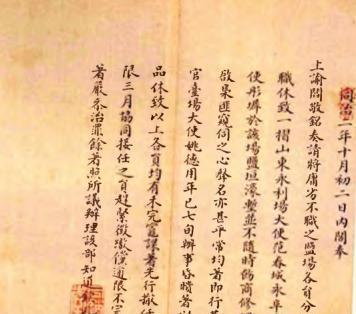 同治二年十月初二日內閣奉
上諭閻敬銘奏請將庸劣不職之鹽場各官分
職休致一摺山東永利場大使范春城永阜
使彤墀於該場鹽垣濠塹並不隨時飭商修
啟梟匪窺伺之心聲名亦甚平常均著即行革
官臺場大使姚德用年已七旬辦事昏瞶著以
品休致以上各員均有未完竈課著先行撤任
限三月協同接任之員趕緊徵繳儻逾限不完
著嚴參治罪餘著照所議辦理該部知道欽此